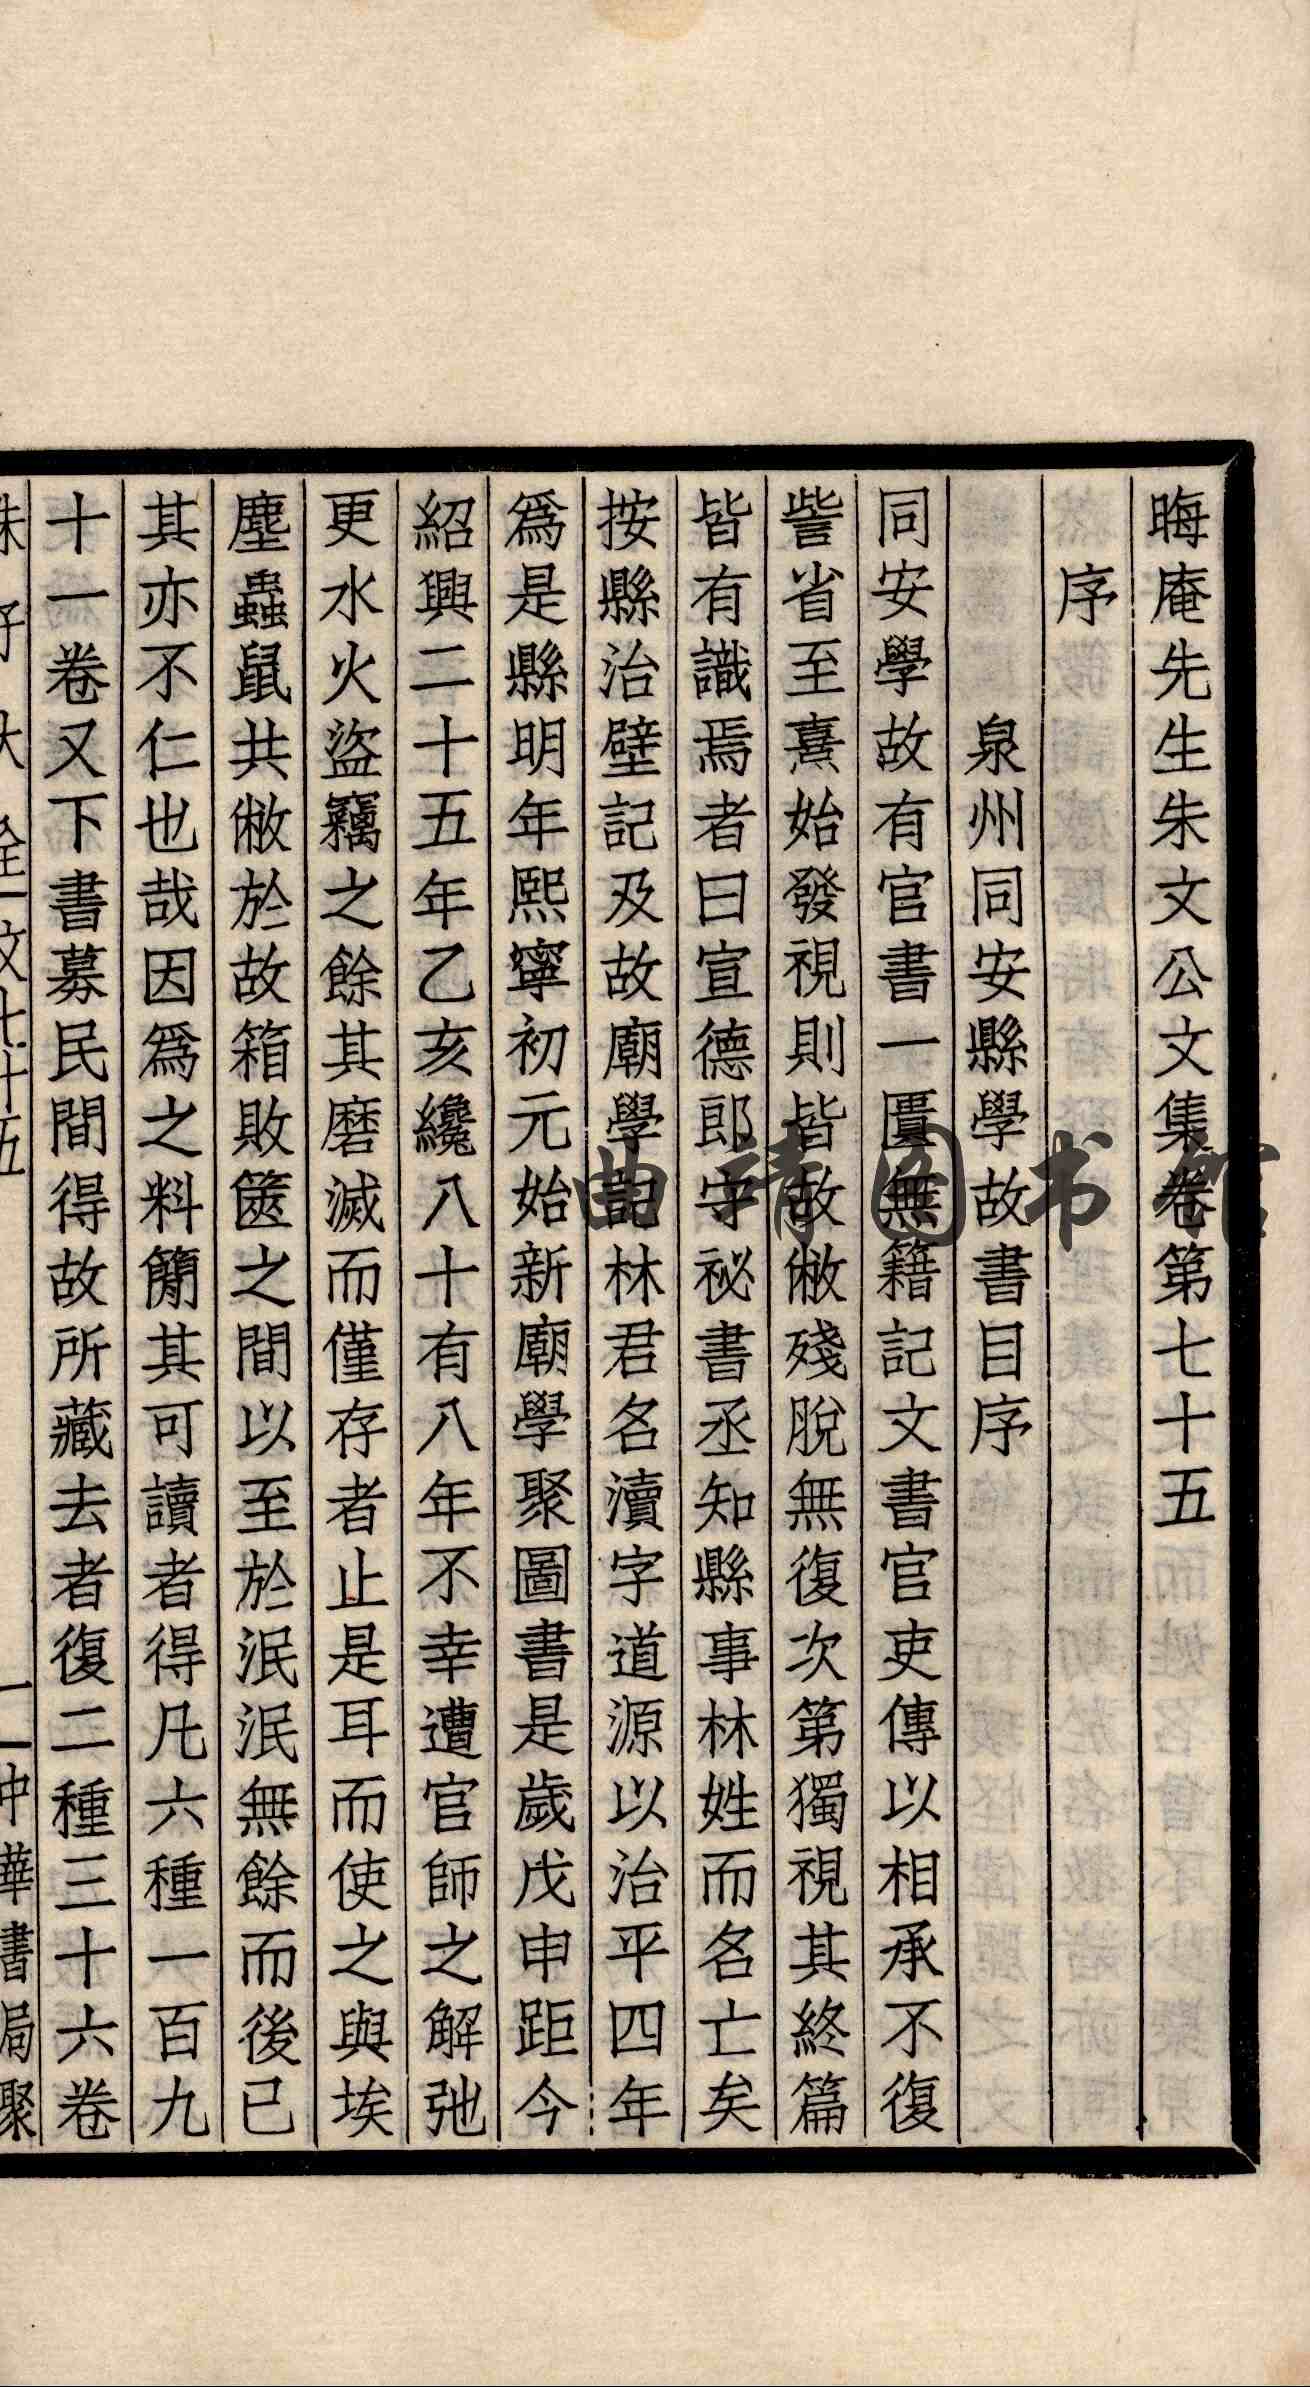 晦庵先生朱文公文集卷第七十五
序
泉州同安縣學故書目序
同安學故有官書一匱無籍記文書官吏傳以相承不復
訾省至熹始發視則皆故敝殘脫無復次第獨視其終篇
皆有識焉者曰宣德郎守祕書丞知縣事林姓而名亡矣
按縣治壁記及故廟學記林君名瀆字道源以治平四年
爲是縣明年熙寧初元始新廟學聚圖書是歲戊申距今
紹興二十五年乙亥纔八十有八年不幸遭官師之解弛
更水火盜竊之餘其磨滅而僅存者止是耳而使之與埃
塵蟲鼠共敝於故箱敗篋之間以至於泯泯無餘而後已
其亦不仁也哉因爲之料簡其可讀者得凡六種一百九
十一卷又下書募民間得故所藏去者復二種三十六卷
朱子大全 文七十五 一 中華書局聚
曲靖图书馆